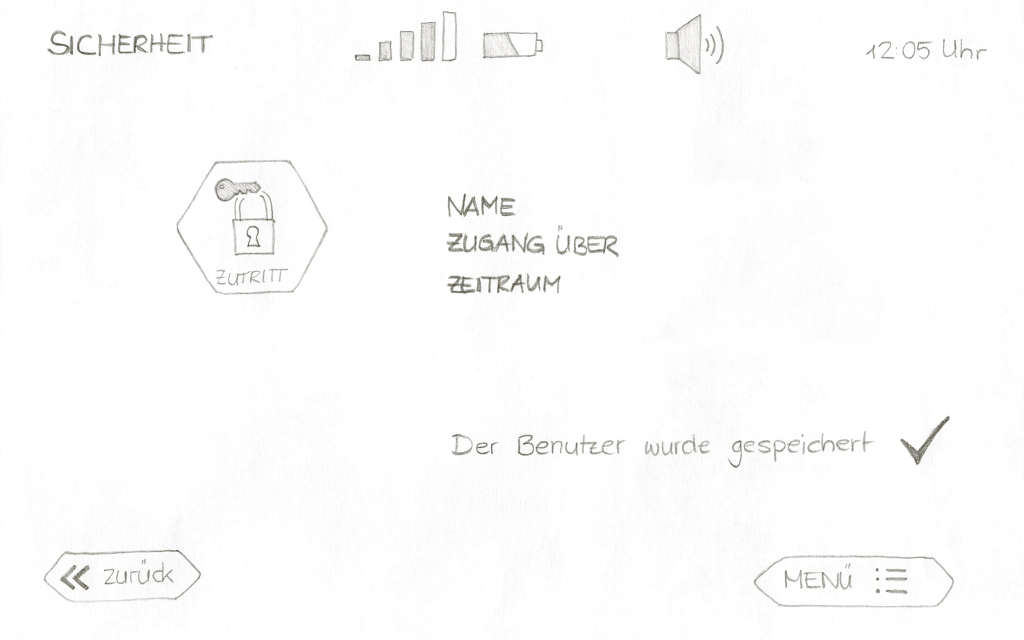 SICHERHEIT
12:05 Uhr
ZUTRITT
NAME
ZUGANG ÜBER
ZEITRAUM
Der Benutzer wurde gespeichert
zurück
MENÜ